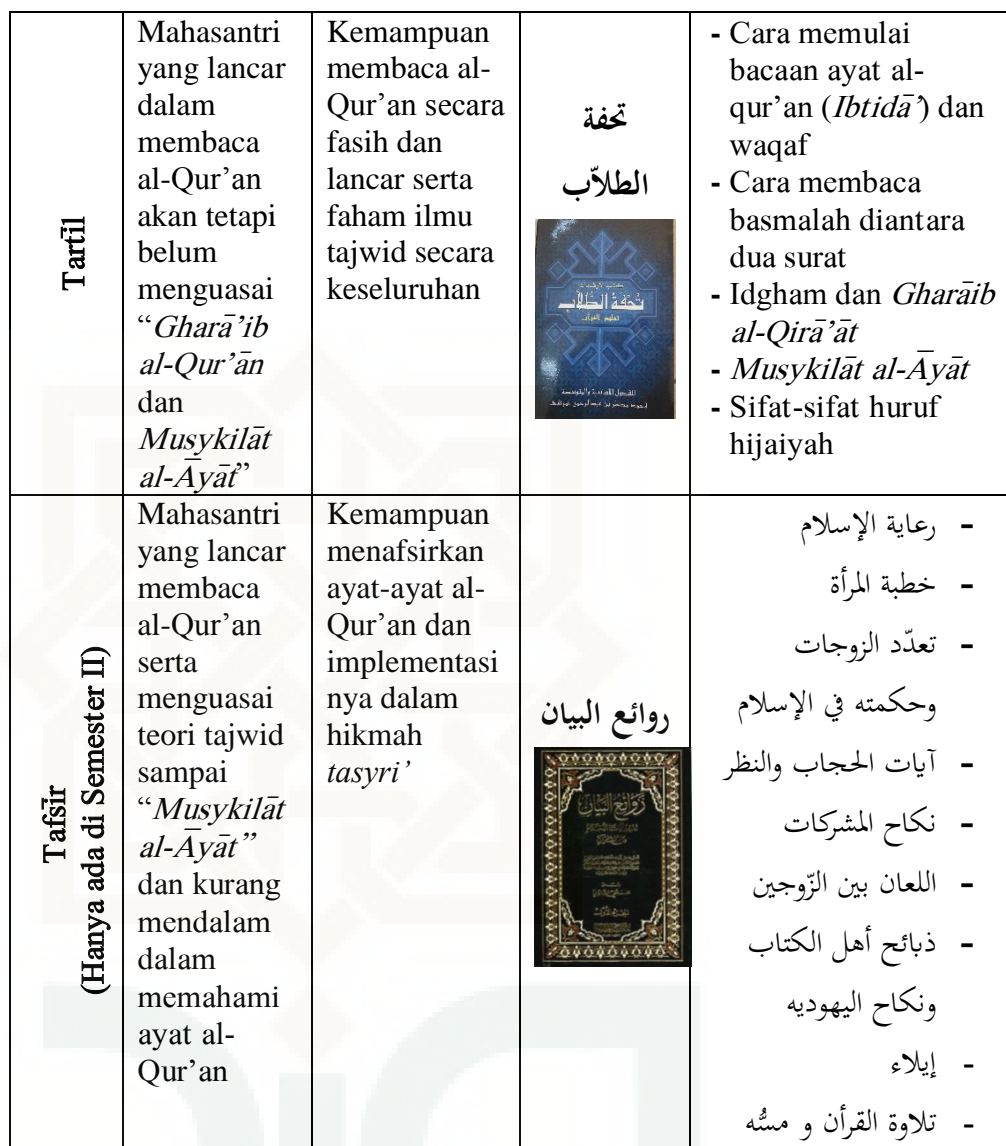 Tartīl
Mahasantri
yang lancar
dalam
membaca
al-Qur’an
akan tetapi
belum
menguasai
“Gharā’ib
al-Qur’ān
dan
Musykilāt
al-Āyāt”
Kemampuan
membaca al-
Qur’an secara
fasih dan
lancar serta
faham ilmu
tajwid secara
keseluruhan
تحفة
الطلاّب
تحفة الطلاب
- Cara memulai
bacaan ayat al-
qur’an (Ibtidā’) dan
waqaf
- Cara membaca
basmalah diantara
dua surat
- Idgham dan Gharāib
al-Qirā’āt
- Musykilāt al-Āyāt
- Sifat-sifat huruf
hijaiyah
Tafsīr
(Hanya ada di Semester II)
Mahasantri
yang lancar
membaca
al-Qur’an
serta
menguasai
teori tajwid
sampai
“Musykilāt
al-Āyāt”
dan kurang
mendalam
dalam
memahami
ayat al-
Qur’an
Kemampuan
menafsirkan
ayat-ayat al-
Qur’an dan
implementasi
nya dalam
hikmah
tasyri’
روائع البيان
روائع البيان
- رعاية الإسلام
- خطبة المرأة
- تعدّد الزوجات
وحكمته في الإسلام
- آيات الحجاب والنظر
- نكاح المشركات
- اللعان بين الزّوجين
- ذبائح أهل الكتاب
ونكاح اليهوديه
- إيلاء
- تلاوة القرأن و مسُّه